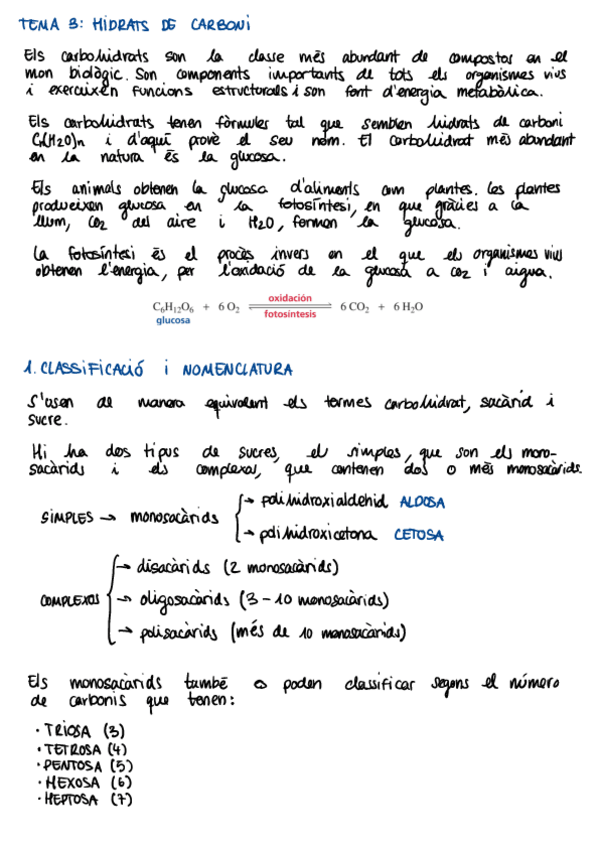 TEMA 3: HIDRATS DE CARBONI
Els carbohidrats son la classe més abundant de compostos en el
mon biològic. Son components importants de tots els organismes vius
i exerceixen funcions estructurals i son font d'energia metabòlica.
Els carbohidrats tenen fòrmules tal que semblen hidrats de carboni
Cn(H2O)n i d'aquí prové el seu nom. El carbohidrat més abundant
en la natura és la glucosa.
Els animals obtenen la glucosa d'aliments com plantes. Les plantes
produeixen glucosa en la fotosíntesi, en que gràcies a la
llum, CO2 del aire i H2O, formen la glucosa.
La fotosíntesi és el procés invers en el que els organismes vius
obtenen l'energia, per l'oxidació de la glucosa a CO2 i aigua.
C6H12O6 + 6 O2 oxidación fotosíntesis 6 CO2 + 6 H2O
glucosa
1. CLASSIFICACIÓ i NOMENCLATURA
S'usen de manera equivalent els termes carbohidrat, sacàrid i
sucre.
Hi ha dos tipus de sucres, els simples, que son els mono-
sacàrids i els complexos, que contenen dos o més monosacàrids.
SIMPLES → monosacàrids
→ polihidroxialdehid ALDOSA
→ polihidroxicetona CETOSA
COMPLEXOS
→ disacàrids (2 monosacàrids)
→ oligosacàrids (3-10 monosacàrids)
→ polisacàrids (més de 10 monosacàrids)
Els monosacàrids també es poden classificar segons el número
de carbonis que tenen:
· TRIOSA (3)
· TETROSA (4)
· PENTOSA (5)
· HEXOSA (6)
· HEPTOSA (7)